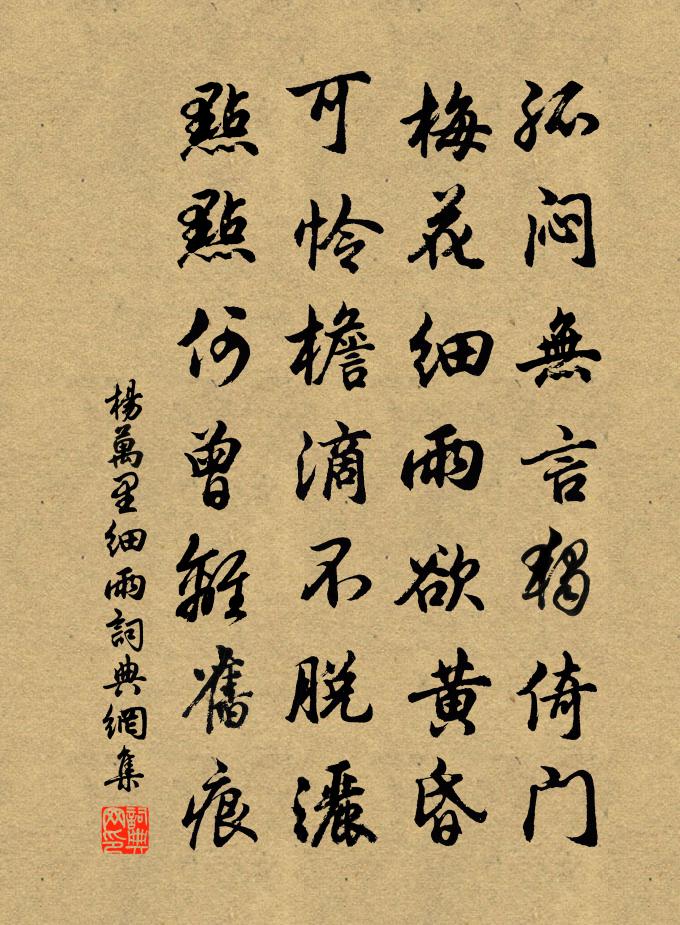 孤闷無言獨倚门
梅花细雨欲黄昏
可怜檐滴不脱灑
點點何曾離舊痕
楊萬里细雨詞典網集
詞典
网印